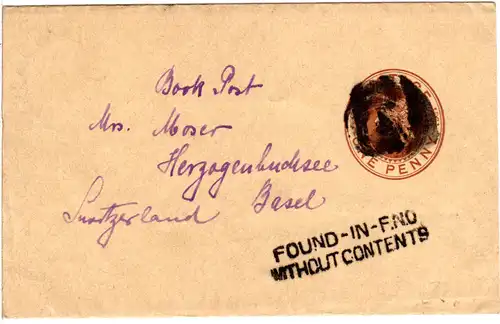 Book Post
Mrs. Moser
Herzogenbuchsee
Switzerland Basel
ONE PENNY
FOUND-IN-F.NO
WITHOUT CONTENTS